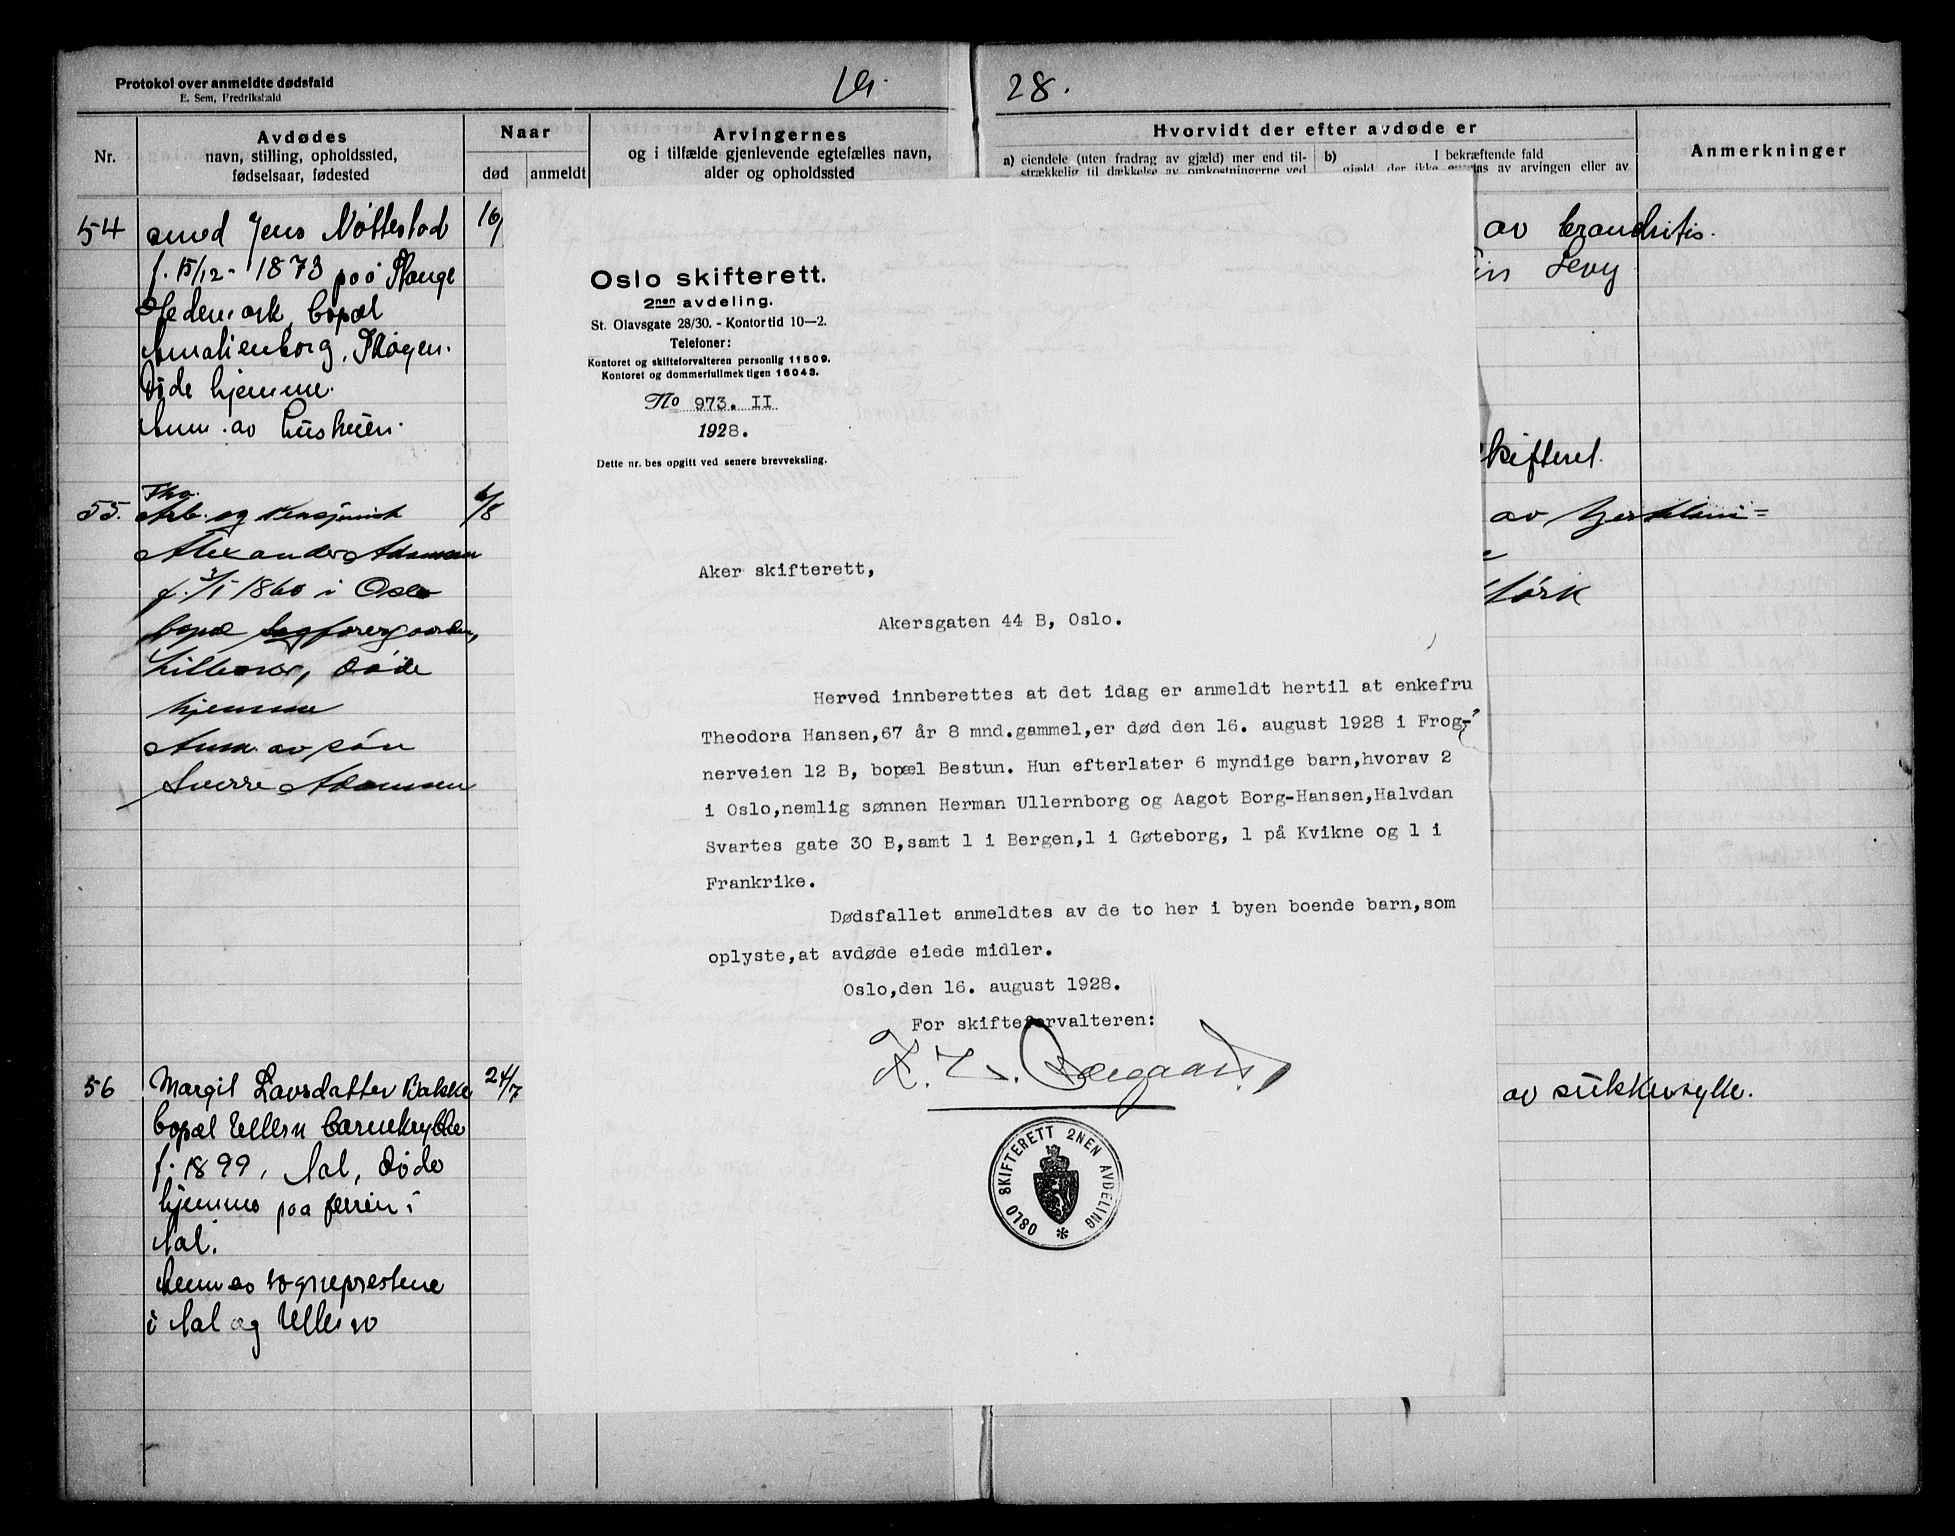 Protokol over anmeldte dødsfald
E. Sem, Fredrikshald
19
28.
Nr.
Avdødes
navn, stilling, opholdssted,
fødselsaar, fødested
Naar
død
anmeldt
Arvingernes
og i tilfælde gjenlevende egtefælles navn,
alder og opholdssted
Hvorvidt der efter avdøde er
a) eiendele (uten fradrag av gjæld) mer end til-
strækkelig til dækkelse av omkostningerne ved
b) I bekræftende fald
gjæld, der ikke overtas av arvingen eller av
Anmerkninger
54
Jens Nøttestad
f. 15/12- 1873 paa Stange
Hedemark, bopæl
Amalienborg, Skøyen.
Døde hjemme.
Anm. av hustruen.
16/
av
Levy
skifteret.
55.
Arb. og Pensjonist
Alexander Adamsen
f. 3/1 1860 i Oslo
bopæl Sagførergaarden,
Lilleaker, døde
hjemme
Anm. av søn
Sverre Adamsen
6/8
av
56
Margit Larsdatter Bakke
bopæl Ullern barnekrybbe
f. 1899, Aal, døde
hjemme paa ferien i
Aal.
Anm av sogneprestene
i Aal og Ullern
24/7
av sukkersyke.
Oslo skifterett.
2nen avdeling.
St. Olavsgate 28/30. - Kontortid 10—2.
Telefoner:
Kontoret og skifteforvalteren personlig 11509.
Kontoret og dommerfullmektigen 16043.
No 973. II
1928.
Dette nr. bes opgitt ved senere brevveksling.
Aker skifterett,
Akersgaten 44 B, Oslo.
Herved innberettes at det idag er anmeldt hertil at enkefru
Theodora Hansen,67 år 8 mnd.gammel,er død den 16. august 1928 i Frog-
nerveien 12 B, bopæl Bestun. Hun efterlater 6 myndige barn,hvorav 2
i Oslo,nemlig sønnen Herman Ullernborg og Aagot Borg-Hansen,Halvdan
Svartes gate 30 B,samt 1 i Bergen,1 i Gøteborg, 1 på Kvikne og 1 i
Frankrike.
Dødsfallet anmeldtes av de to her i byen boende barn,som
oplyste,at avdøde eiede midler.
Oslo,den 16. august 1928.
For skifteforvalteren:
OSLO SKIFTERETT 2NEN AVDELING